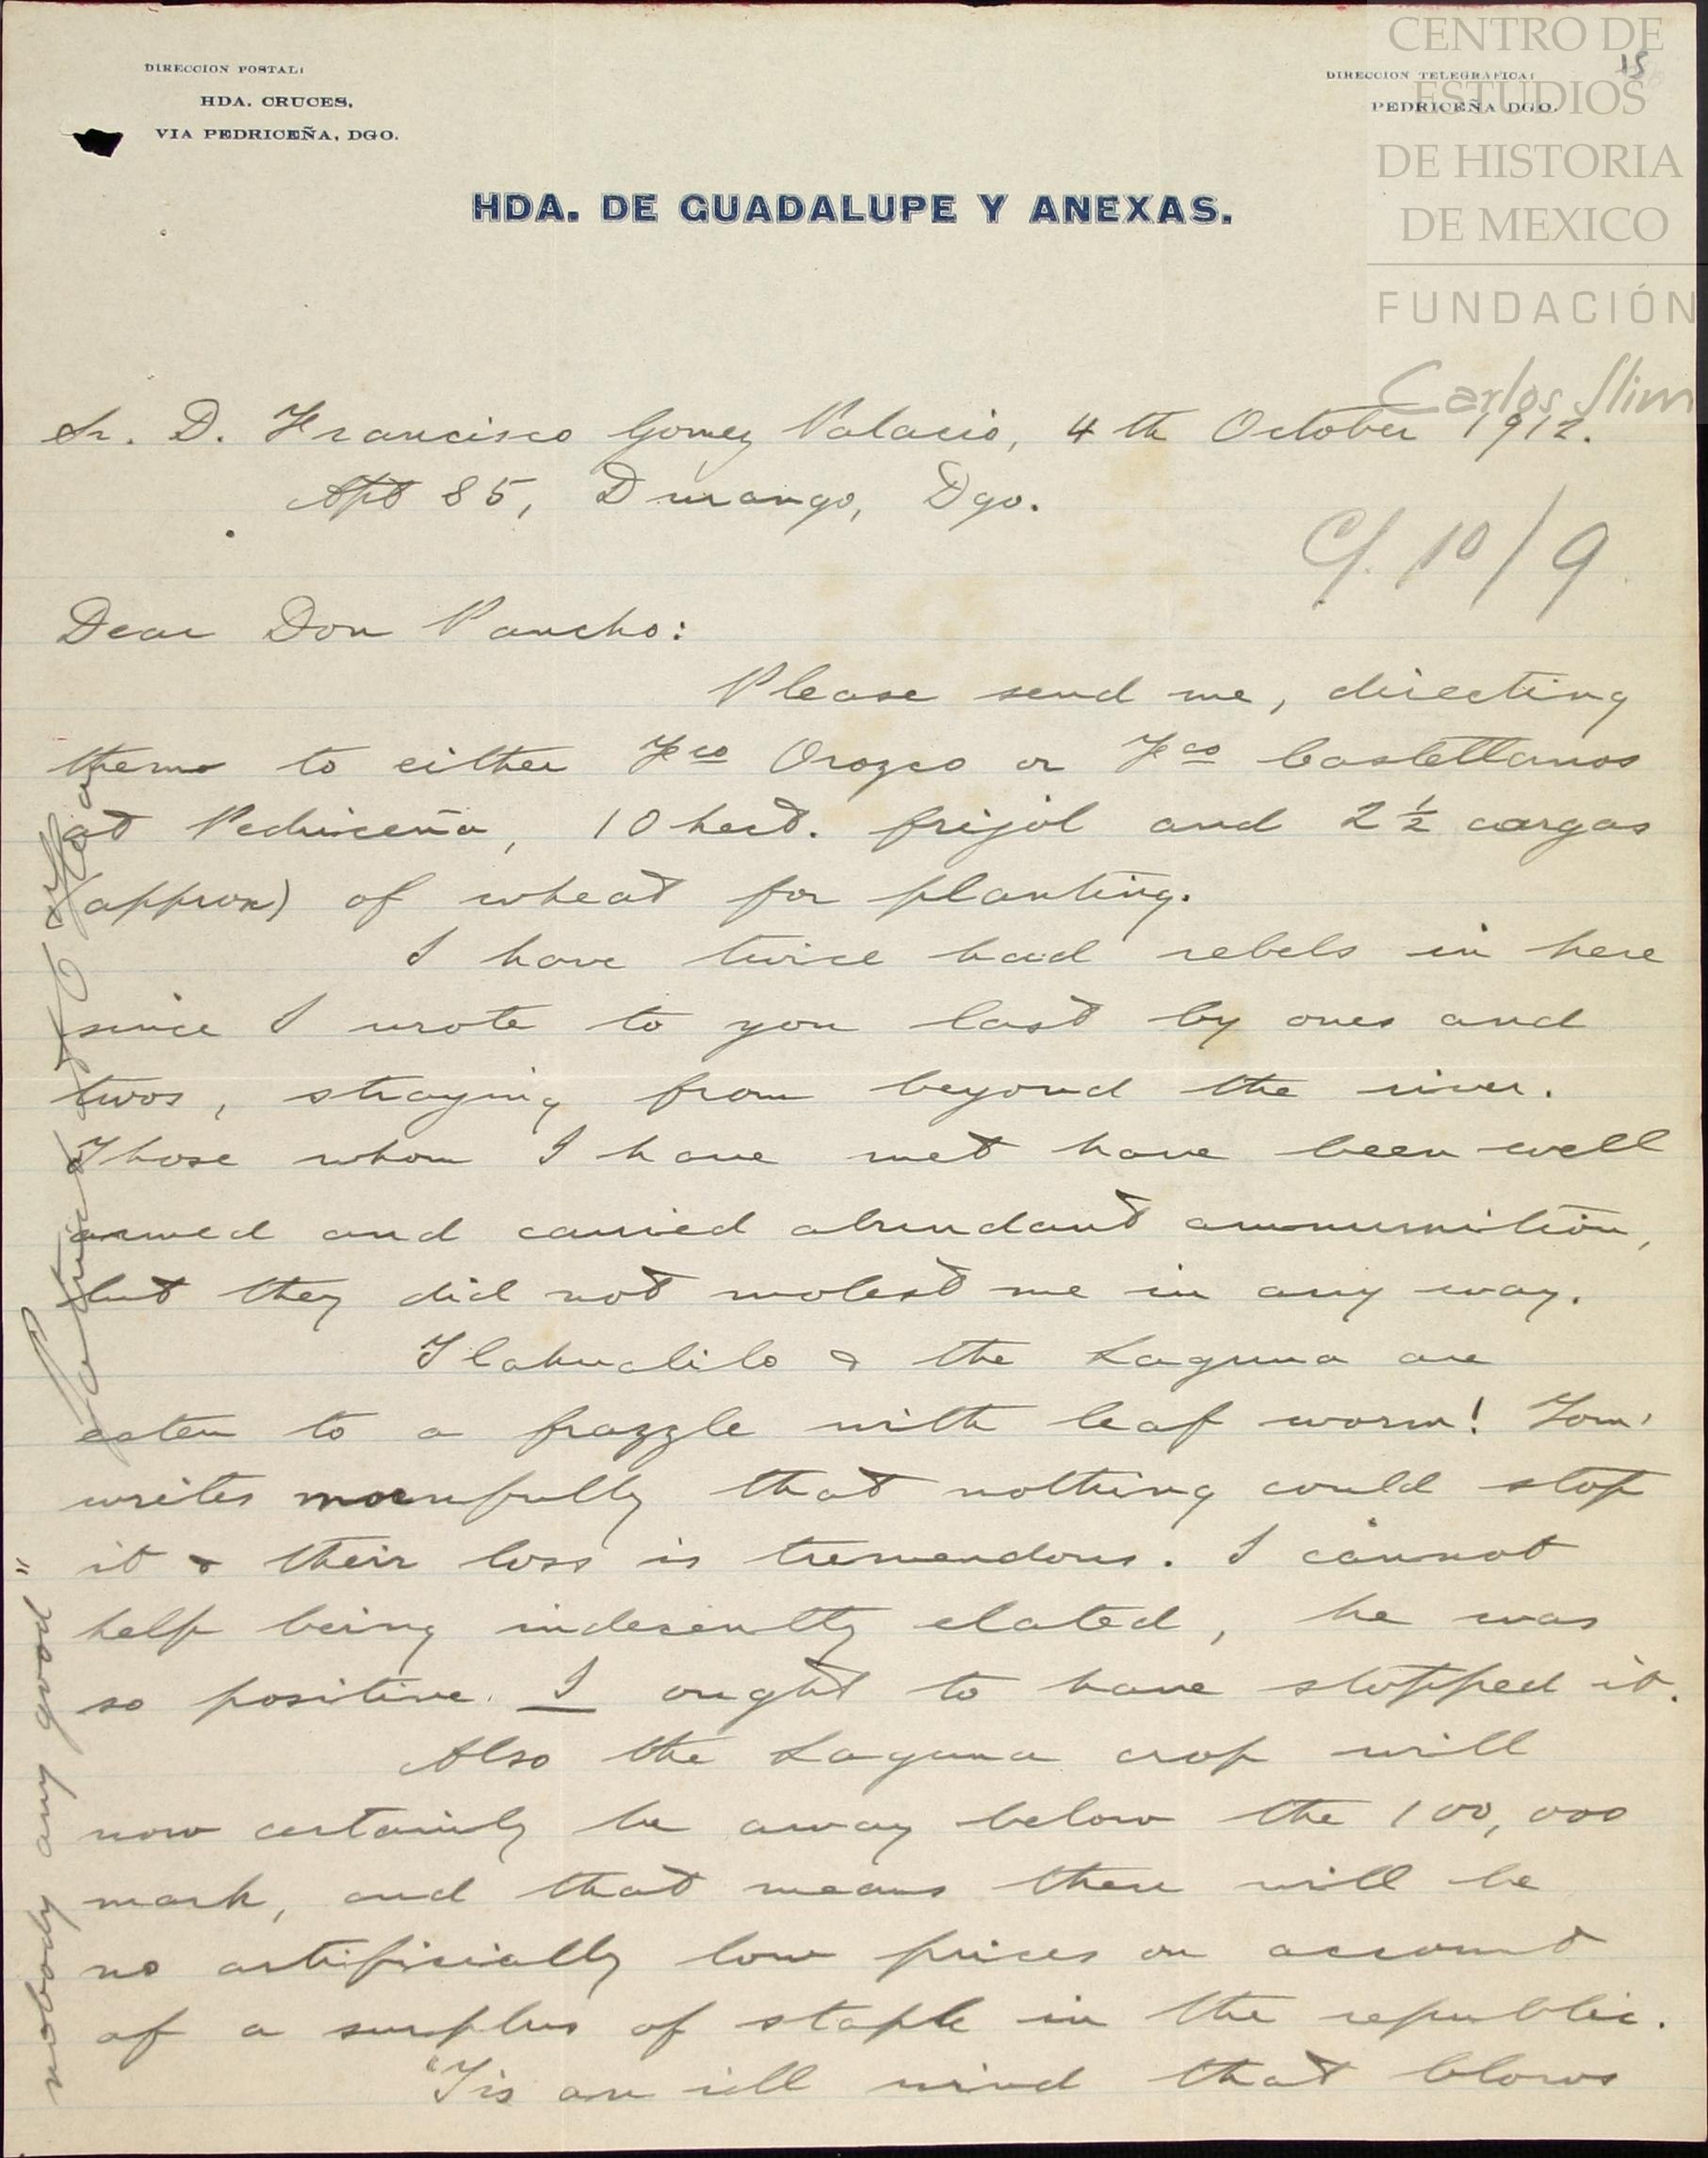 DIRECCION POSTAL:
HDA. CRUCES,
VIA PEDRICEÑA, DGO.
DIRECCION TELEGRAFICA:
PEDRICEÑA DGO.
15
CENTRO DE
ESTUDIOS
DE HISTORIA
DE MEXICO
FUNDACIÓN
Carlos Slim
HDA. DE GUADALUPE Y ANEXAS.
Sr. D. Francisco Gomez Palacio, 4th October 1912.
Apt 85, Durango, Dgo.
C/. 10/9
Dear Don Pancho:
Please send me, directing
them to either Fco Orozco or Fco Castellanos
at Pedriceña, 10 hect. frijol and 2 ½ cargas
(approx) of wheat for planting.
I have twice had rebels in here
since I wrote to you last by ones and
twos, straying from beyond the river.
Those whom I have met have been well
armed and carried abundant ammunition,
but they did not molest me in any way.
Tlahualilo & the Laguna are
eaten to a frazzle with leaf worm! Tom
writes mournfully that nothing could stop
it & their loss is tremendous. I cannot
help being indecently elated, he was
so positive I ought to have stopped it.
Also the Laguna crop will
now certainly be away below the 100,000
mark, and that means there will be
no artificially low prices on account
of a surplus of staple in the republic.
"Tis an ill wind that blows
nobody any good"
Patrick